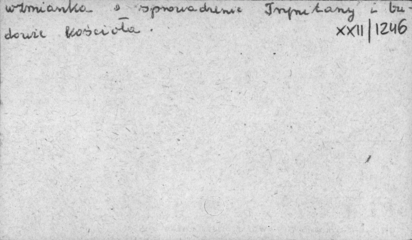 wzmianka o sprowadzenie Trynitarzy i bu-
dowie kościoła.
XXII/1246